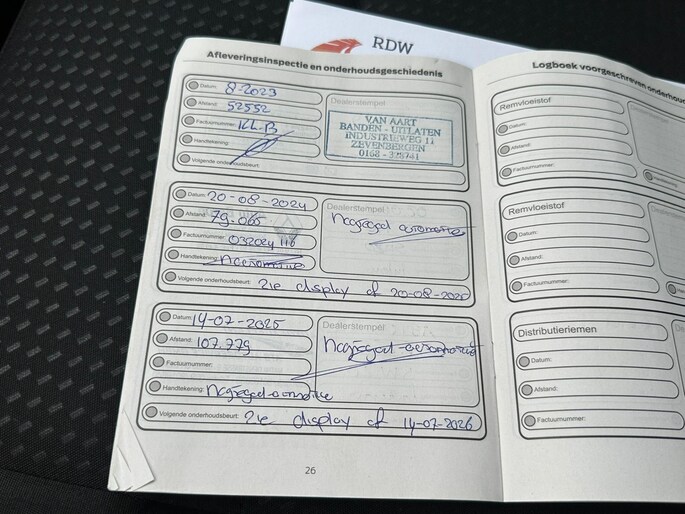 RDW
Afleveringsinspectie en onderhoudsgeschiedenis
Datum: 8-2023
Afstand: 52552
Factuurnummer: KL-B
Handtekening:
Volgende onderhoudsbeurt:
Dealerstempel
VAN AART
BANDEN - UITLATEN
INDUSTRIEWEG 11
ZEVENBERGEN
0168 - 328741
Datum: 20-08-2024
Afstand: 79.065
Factuurnummer: 032024 116
Handtekening:
Volgende onderhoudsbeurt: zie display of 20-08-2025
Dealerstempel
Datum: 14-07-2025
Afstand: 107.779
Factuurnummer:
Handtekening:
Volgende onderhoudsbeurt: zie display of 14-07-2026
Dealerstempel
26
Logboek voorgeschreven
Remvloeistof
Datum:
Afstand:
Factuurnummer:
Remvloeistof
Datum:
Afstand:
Factuurnummer:
Distributieriemen
Datum:
Afstand:
Factuurnummer: